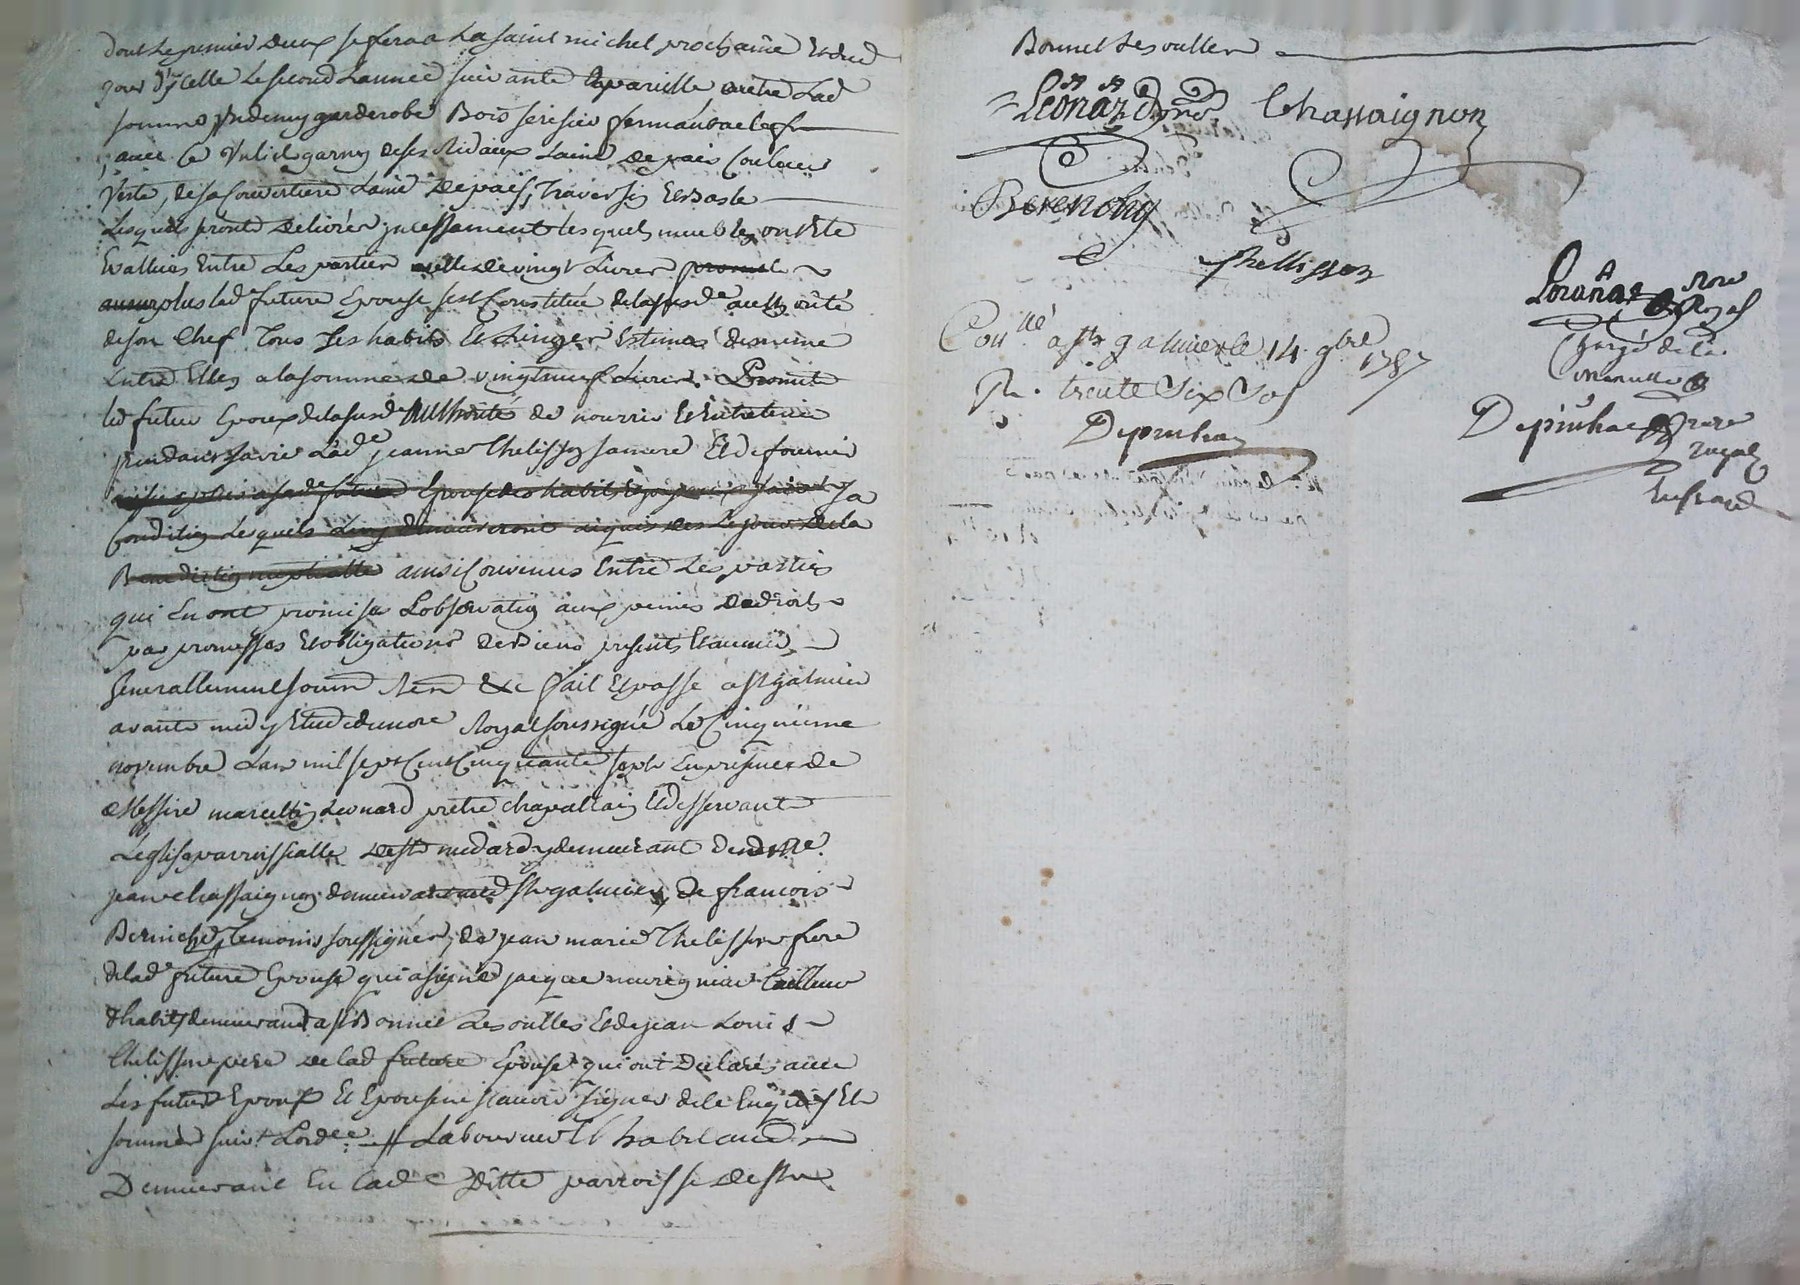 dont le premier deux se fera a la saint michel prochaine et dud
jour d'jcelle le second l'année suivante
somme un demy garderobe Bois serisier fermant a clef
avec Ce garny de ses Rideaux Laine de païs Couleur
verte, de sa Couverture Laine de païs, Traversin
Lesquels seront delivrés jncessament lesquels meubles ont Eté
Evallués Entre Les parties de vingt Livres
au surplus lad.e future Epouse s'est Constituée de la susd.e authorité
de son Chef Tous ses habits Et Linges Estimés de même
Entre Elles a la somme de vingt neuf Livres Promet
led futur Epoux de la susd.e Authorité de nourrir Et Entretenir
pendant sa vie Lad.e jeanne Thelisson sa mere Et de fournir
future Epouse des habits sa
Condition Lesquels demeureront aquis des Le jour de la
Benediction nuptialle ainsi Convenus Entre Les parties
qui En ont promis L'observation aux peines de droit
par promesses Et obligations de Biens presents Et avenir
generallement soumn Ren &c fait Et passé a St galmier
avant midy Etude du nore Royal soussigné Le Cinquieme
novembre L'an mil sept Cent Cinquante sept En presence de
Messire marcellin Leonard prêtre chapallain Et desservant
L'eglise parroissialle de St medard y demeurant
jean chassaignon demeurant St galmier, de francois
temoins soussignés, de jean marie Thelisson frere
de lad.e future Epouse qui a signé jacque tailleur
d'habits demeurant a St Bonnet Les oulles Et de jean Louis
Thelisson pere de lad future Epouse qui ont Declaré, avec
Les futurs Epoux Et Epouse ne scavoir signer de ce Enquis Et
sommés suiv.t L'ord.ce // Laboureur Et habitant
Demeurant En Lad.e ditte parroisse de St
Bonnet Les oulles
Léonard Chassaignon
Thellisson
Con.llé a St galmier le 14 9bre 1757
R. trente Six Sols
Depinhac
nore
Royal
Chargé de la
minutte
Depinhac